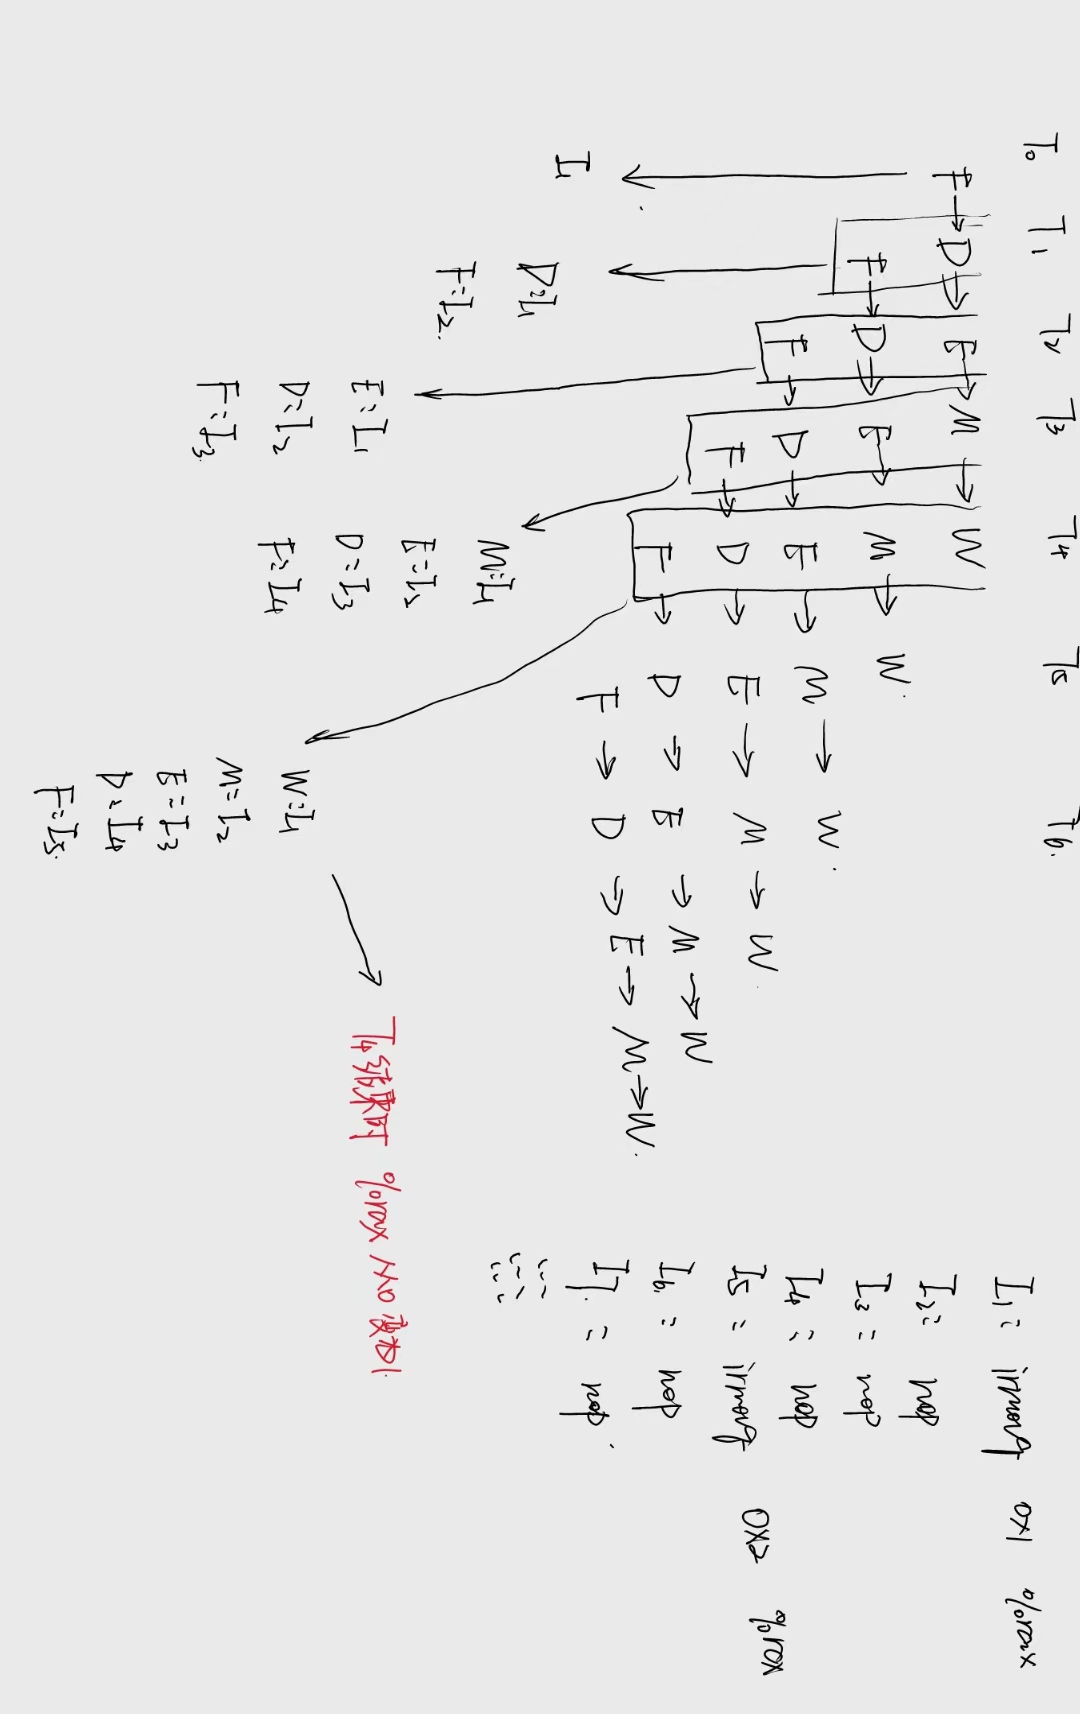 T0 T1 T2 T3 T4 T5 T6.
F → D → E → M → W
F → D → E → M → W.
F → D → E → M → W.
F → D → E → M → W.
F → D → E → M → W
F → D → E → M → W.
I1
D:I1
F:I2.
E:I1
D:I2
F:I3.
M:I1
E:I2
D:I3
F:I4
W:I1
M:I2
E:I3
D:I4
F:I5.
T4结束时 %rax 从0变为1.
I1: irmovq 0x1 %rax
I2: nop
I3: nop
I4: nop
I5: irmovq 0x2 %rax
I6.: nop
I7.: nop